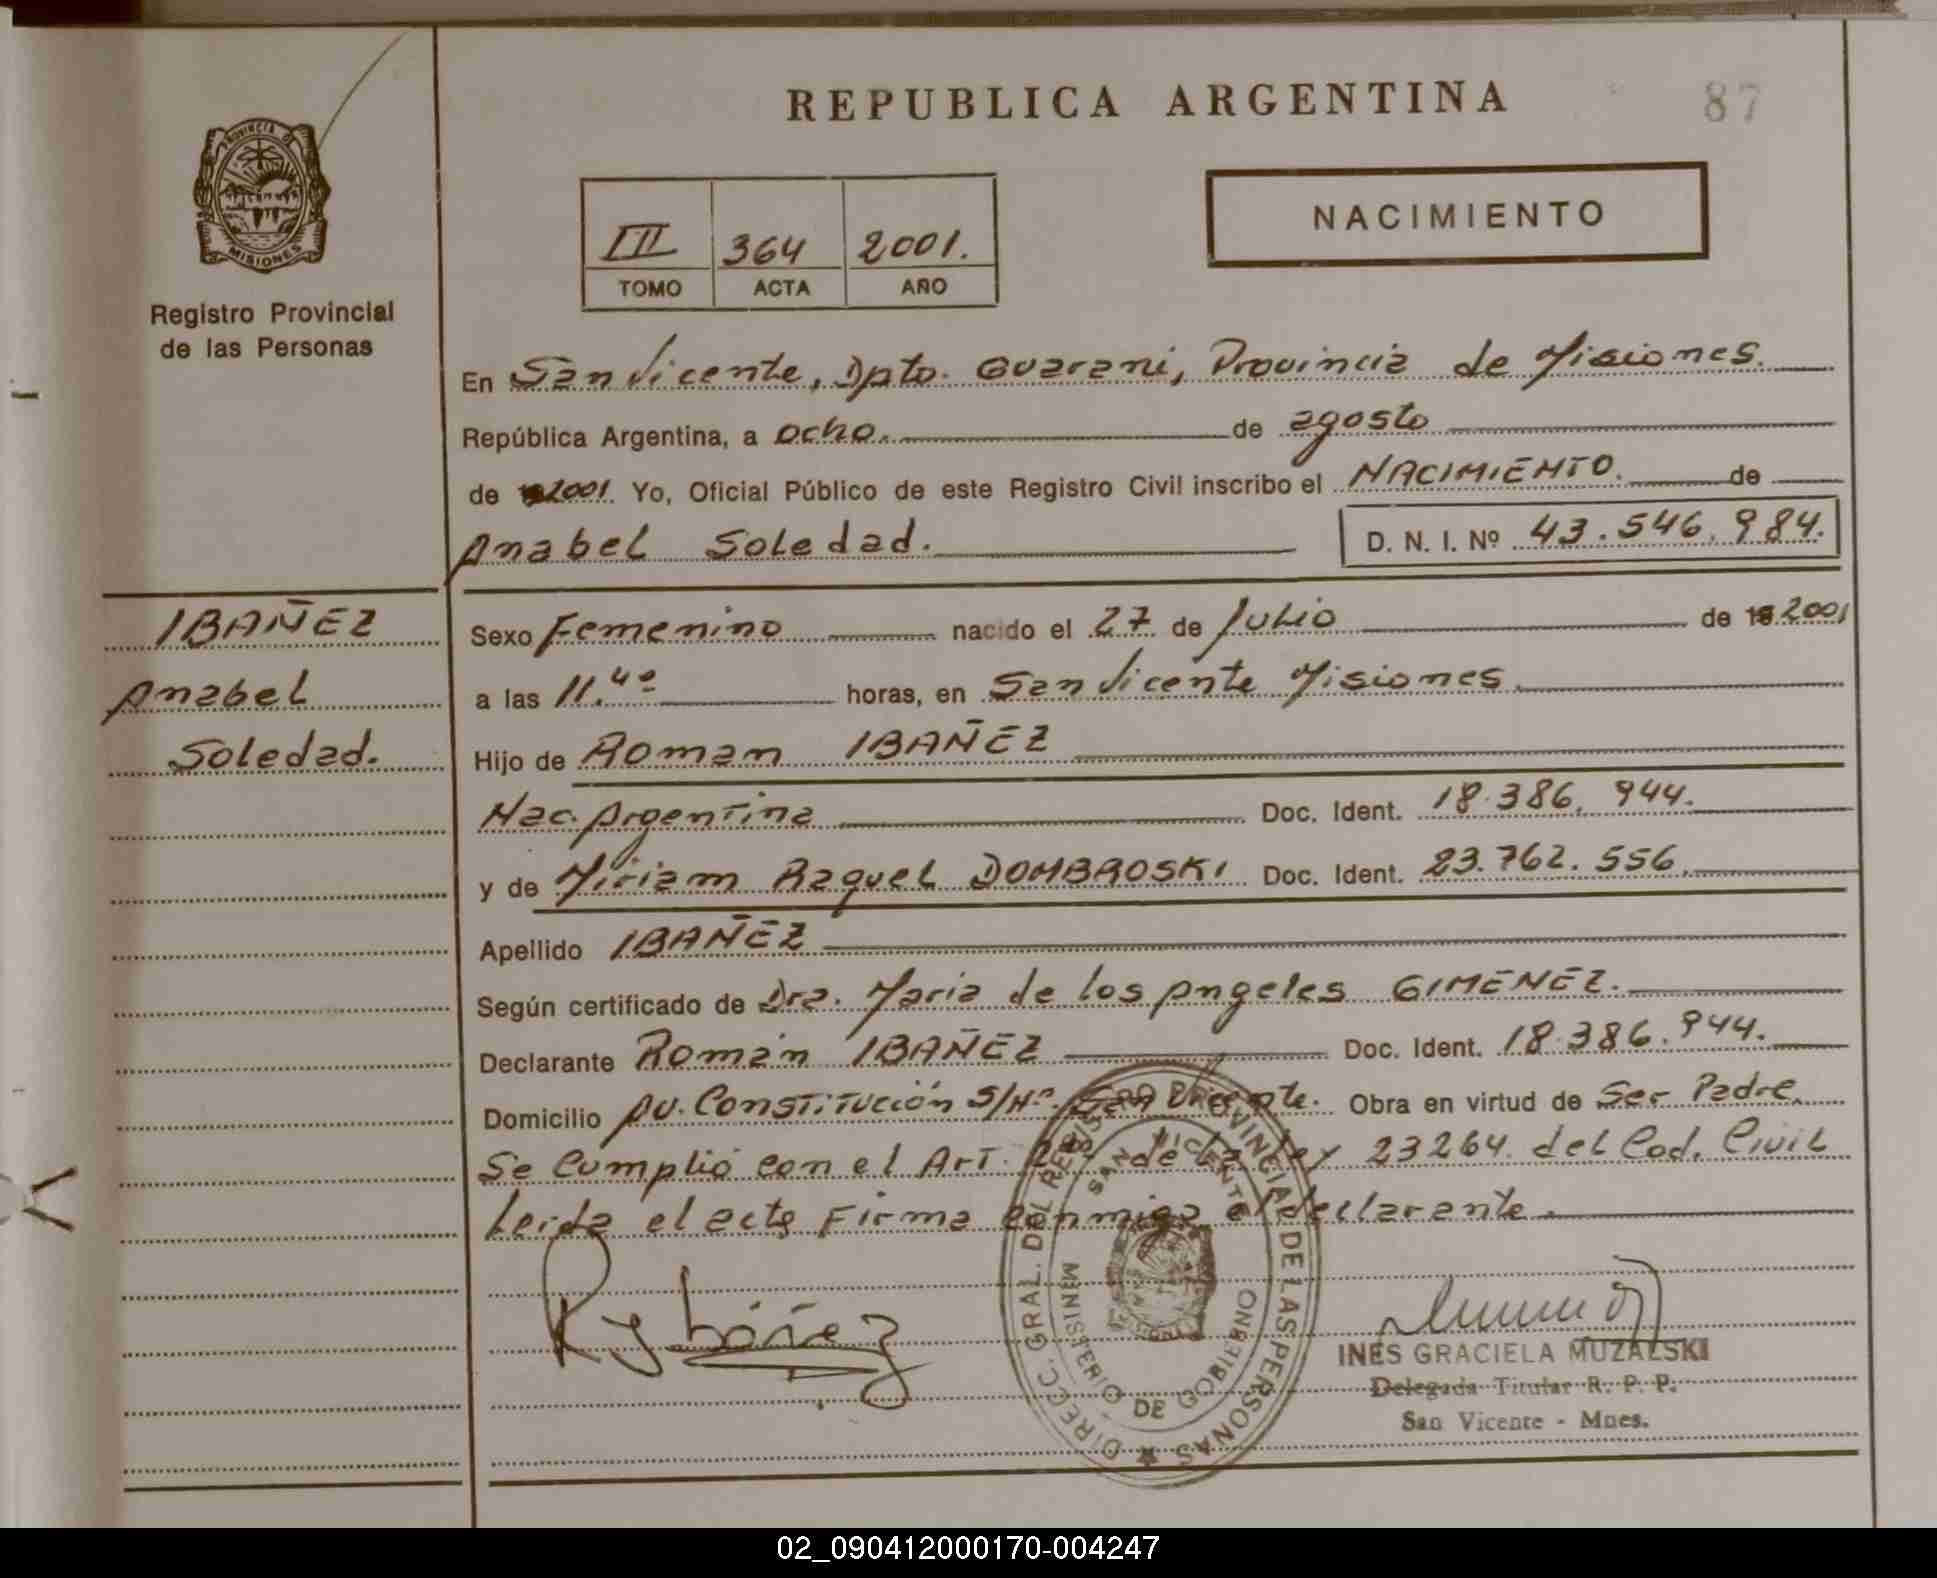 REPUBLICA ARGENTINA
87
PROVINCIA DE
MISIONES
Registro Provincial
de las Personas
III 364 2001.
TOMO ACTA AÑO
NACIMIENTO
En San Vicente, Dpto. Guarani, Provincia de Misiones.
República Argentina, a ocho. de agosto
de 2001. Yo, Oficial Público de este Registro Civil inscribo el NACIMIENTO. de
Anabel Soledad.
D. N. I. Nº 43.546.984.
IBAÑEZ
Anabel
Soledad.
Sexo Femenino nacido el 27 de Julio de 19 2001
a las 11.40 horas, en San Vicente Misiones.
Hijo de Roman IBAÑEZ
Nac. Argentina Doc. Ident. 18.386.944.
y de Miriam Raquel DOMBROSKI Doc. Ident. 23.762.556.
Apellido IBAÑEZ
Según certificado de Dra. Maria de los Angeles GIMENEZ.
Declarante Román IBAÑEZ Doc. Ident. 18.386.944.
Domicilio Av. Constitución S/Nº. San Vicente. Obra en virtud de Ser Padre.
Se Cumplió con el Art. de la Ley 23264. del Cod. Civil
Leida el acta Firma conmigo el declarante.
DIRECC. GRAL. DEL REGISTRO PROVINCIAL DE LAS PERSONAS
SAN VICENTE
MINISTERIO DE GOBIERNO
INES GRACIELA MUZALSKI
Delegada Titular R. P. P.
San Vicente - Mnes.
02_090412000170-004247